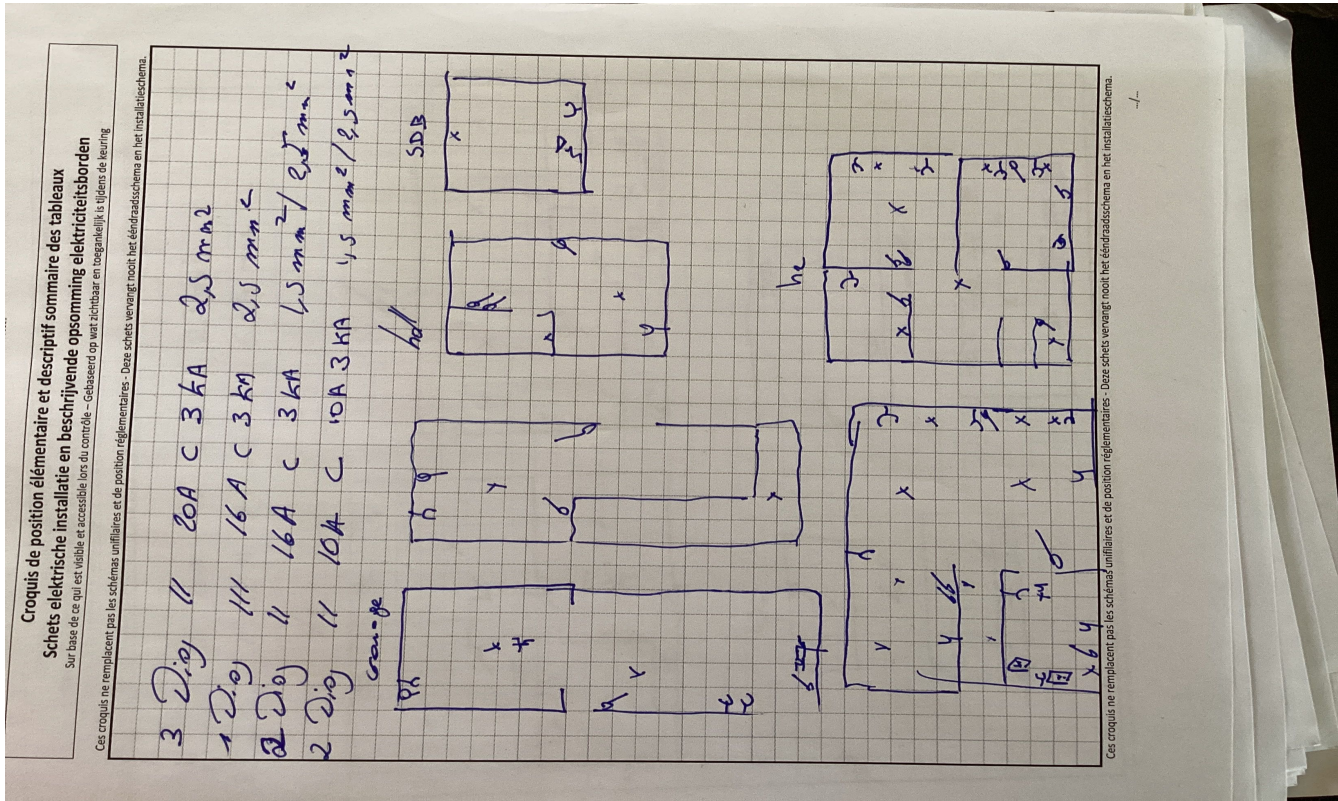 Croquis de position élémentaire et descriptif sommaire des tableaux
Schets elektrische installatie en beschrijvende opsomming elektriciteitsborden
Sur base de ce qui est visible et accessible lors du contrôle – Gebaseerd op wat zichtbaar en toegankelijk is tijdens de keuring
Ces croquis ne remplacent pas les schémas unifilaires et de position réglementaires - Deze schets vervangt nooit het ééndraadsschema en het installatieschema.
3 Disj 11 20A C 3 kA 2,5 mm2
1 Disj 111 16 A C 3 kA 2,5 mm²
2 Disj 11 16A C 3 kA 1,5 mm² / 2,5 mm²
2 Disj 11 10A C 10A 3 kA 1,5 mm² / 2,5 mm²
hall
SDB
Ces croquis ne remplacent pas les schémas unifilaires et de position réglementaires - Deze schets vervangt nooit het ééndraadsschema en het installatieschema.
../...